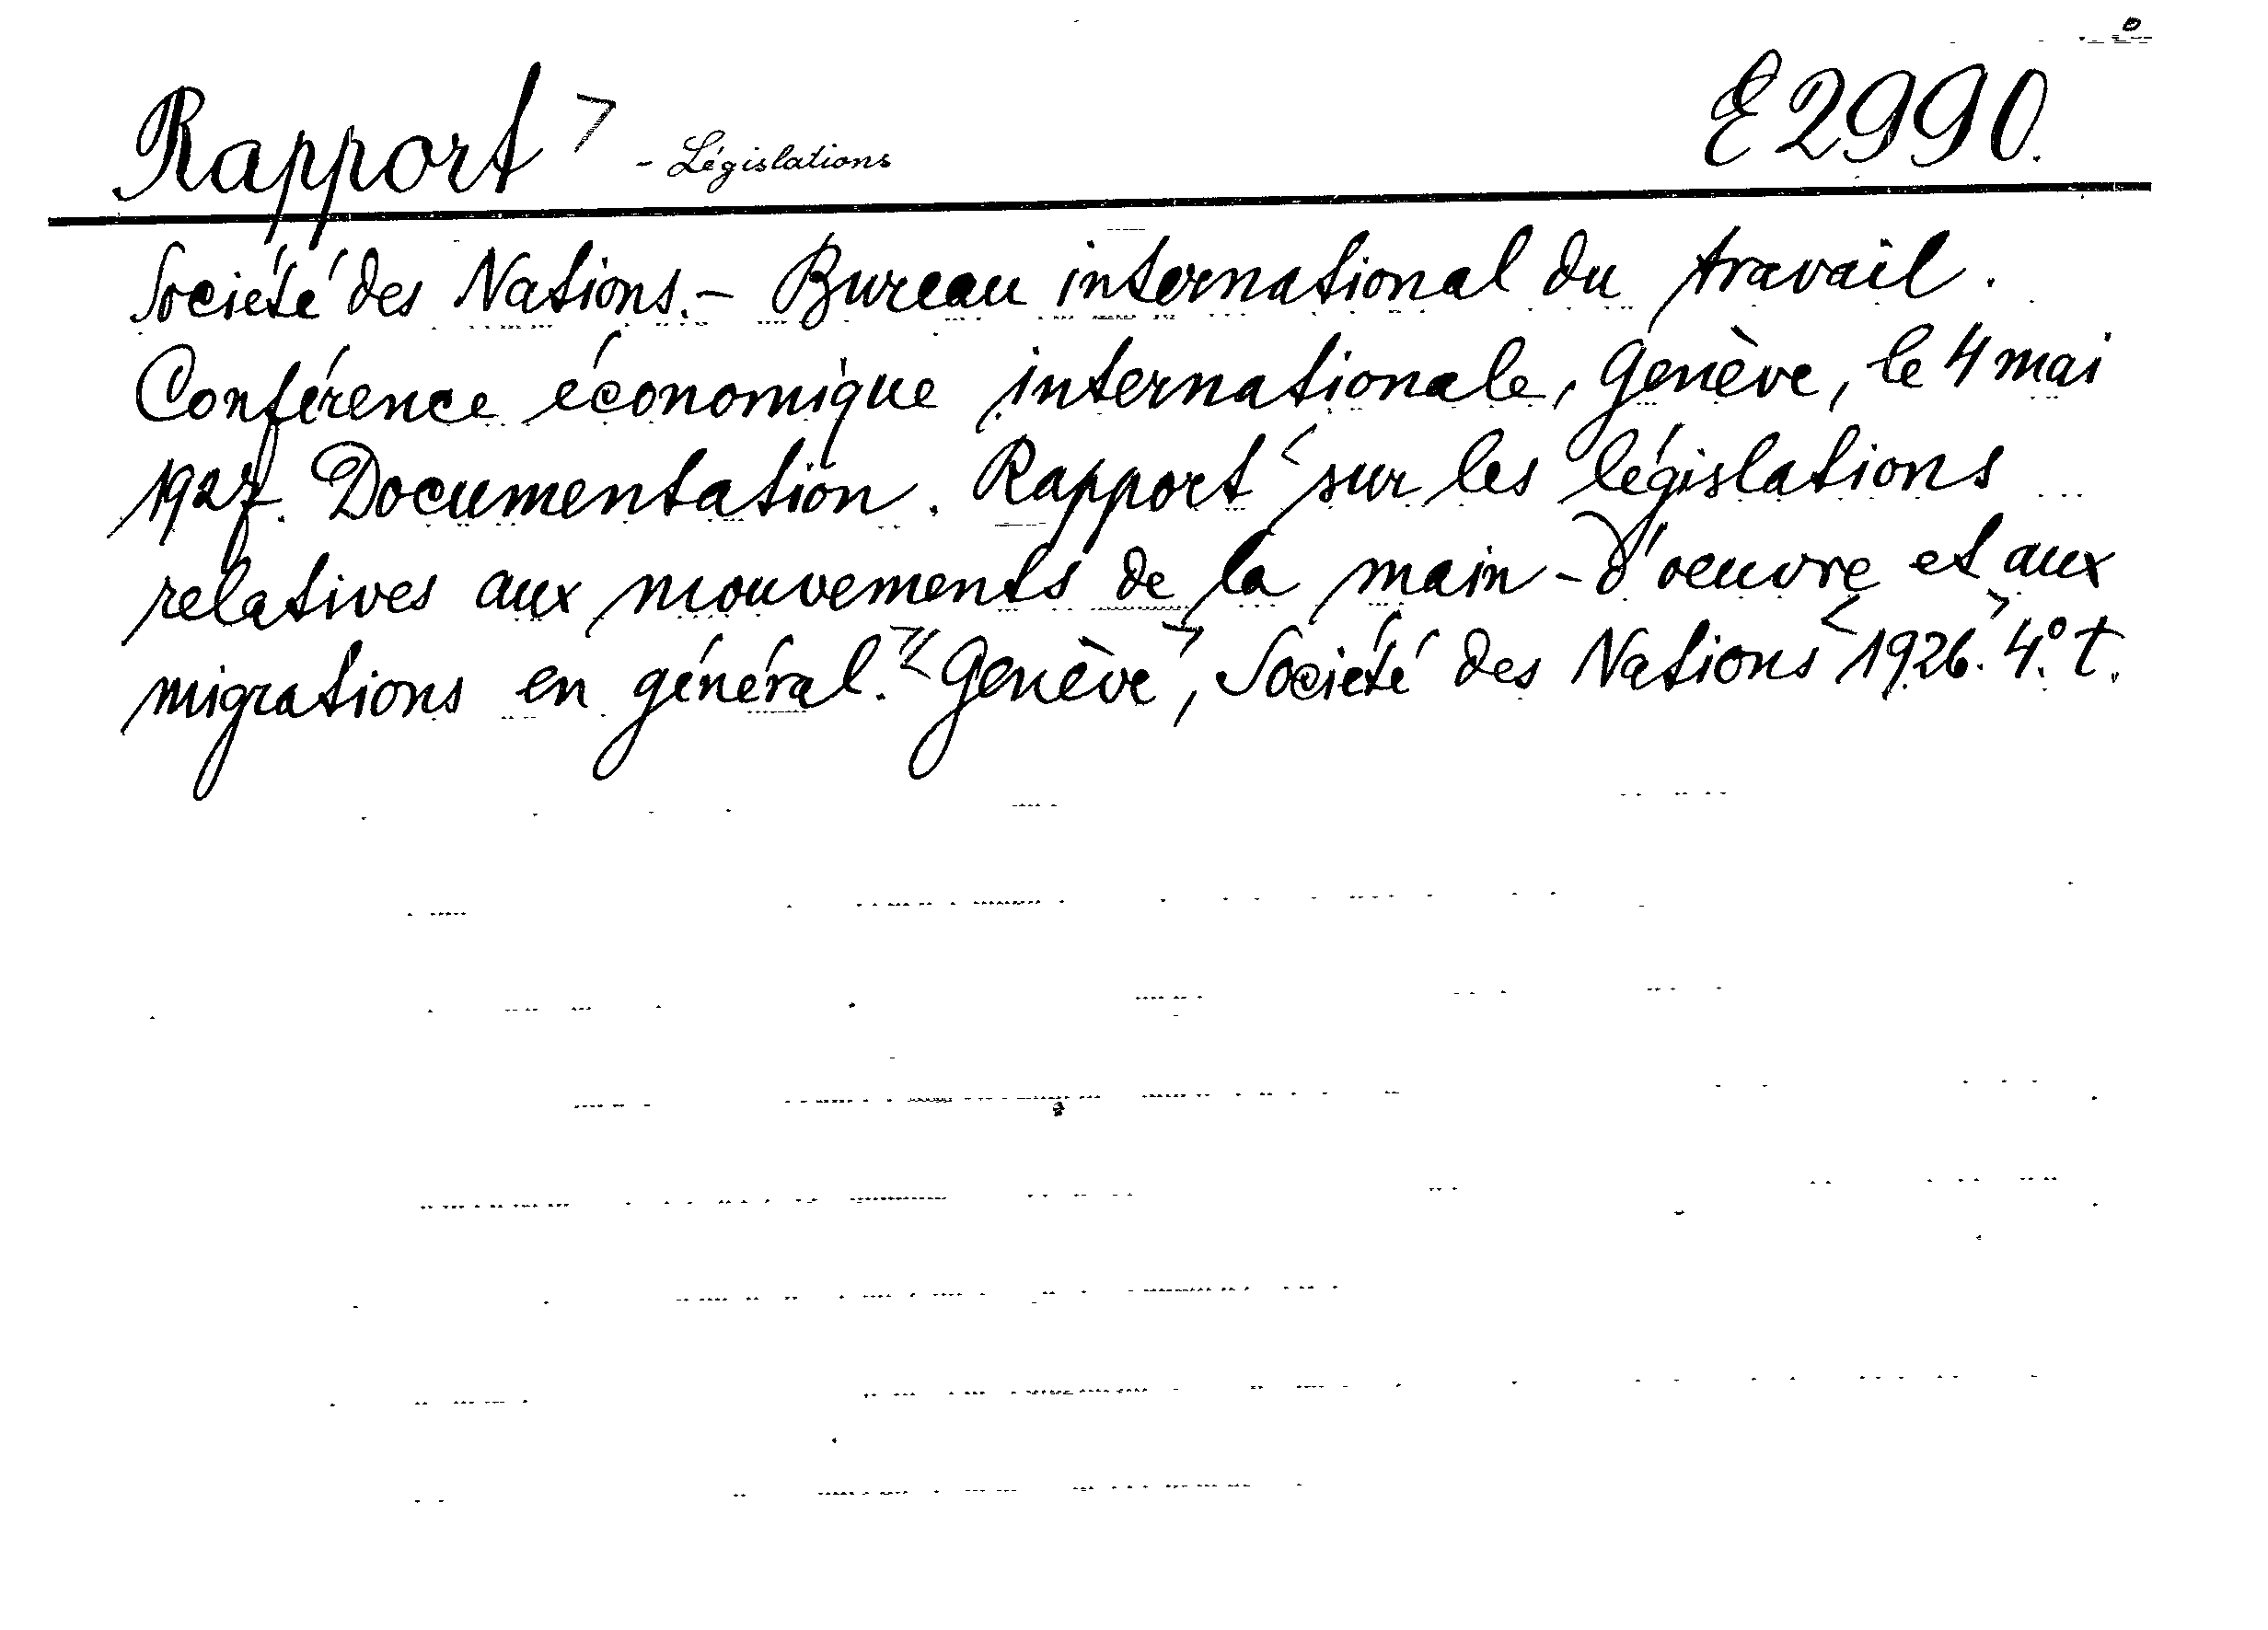 Rapport - Législations E 2990.
Société des Nations. - Bureau international du travail.
Conférence économique internationale, Genève, le 4 mai
1927. Documentation. Rapport sur les législations
relatives aux mouvements de la main-d'oeuvre et aux
migrations en général. Genève, Société des Nations 1926. 4.° t.